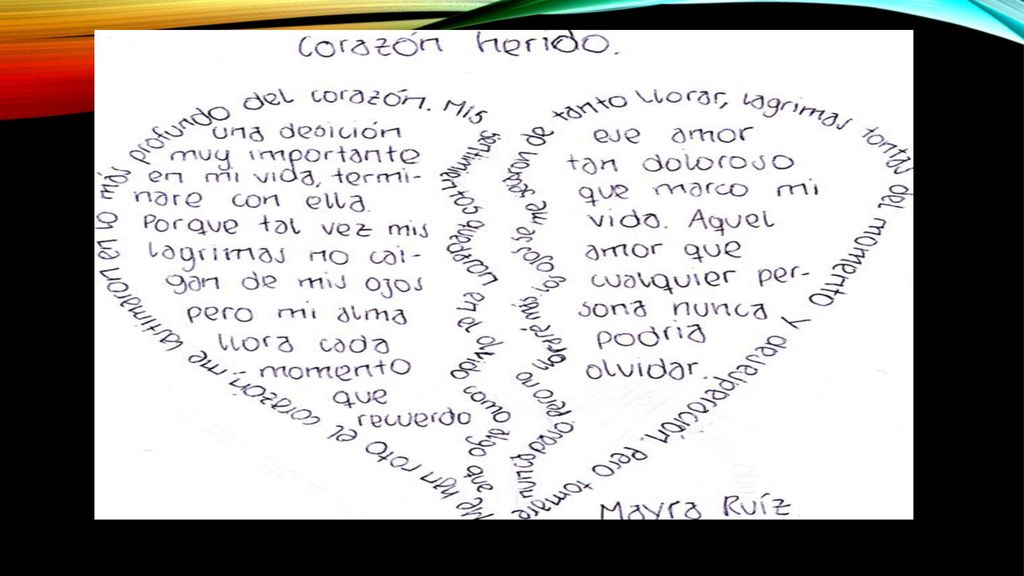 Corazón herido.
Me han roto el corazón; me lastimaron en lo más profundo del corazón. Mis sentimientos quedaran en el olvido como algo que
nunca paso, pero no mis ojos, se me de tanto llorar, lagrimas tontas del momento y desesperación. Pero tomare
una desición
muy importante
en mi vida, termi-
nare con ella.
Porque tal vez mis
lagrimas no cai-
gan de mis ojos
pero mi alma
llora cada
momento
que
recuerdo
ese amor
tan doloroso
que marco mi
vida. Aquel
amor que
cualquier per-
sona nunca
podria
olvidar.
Mayra Ruíz